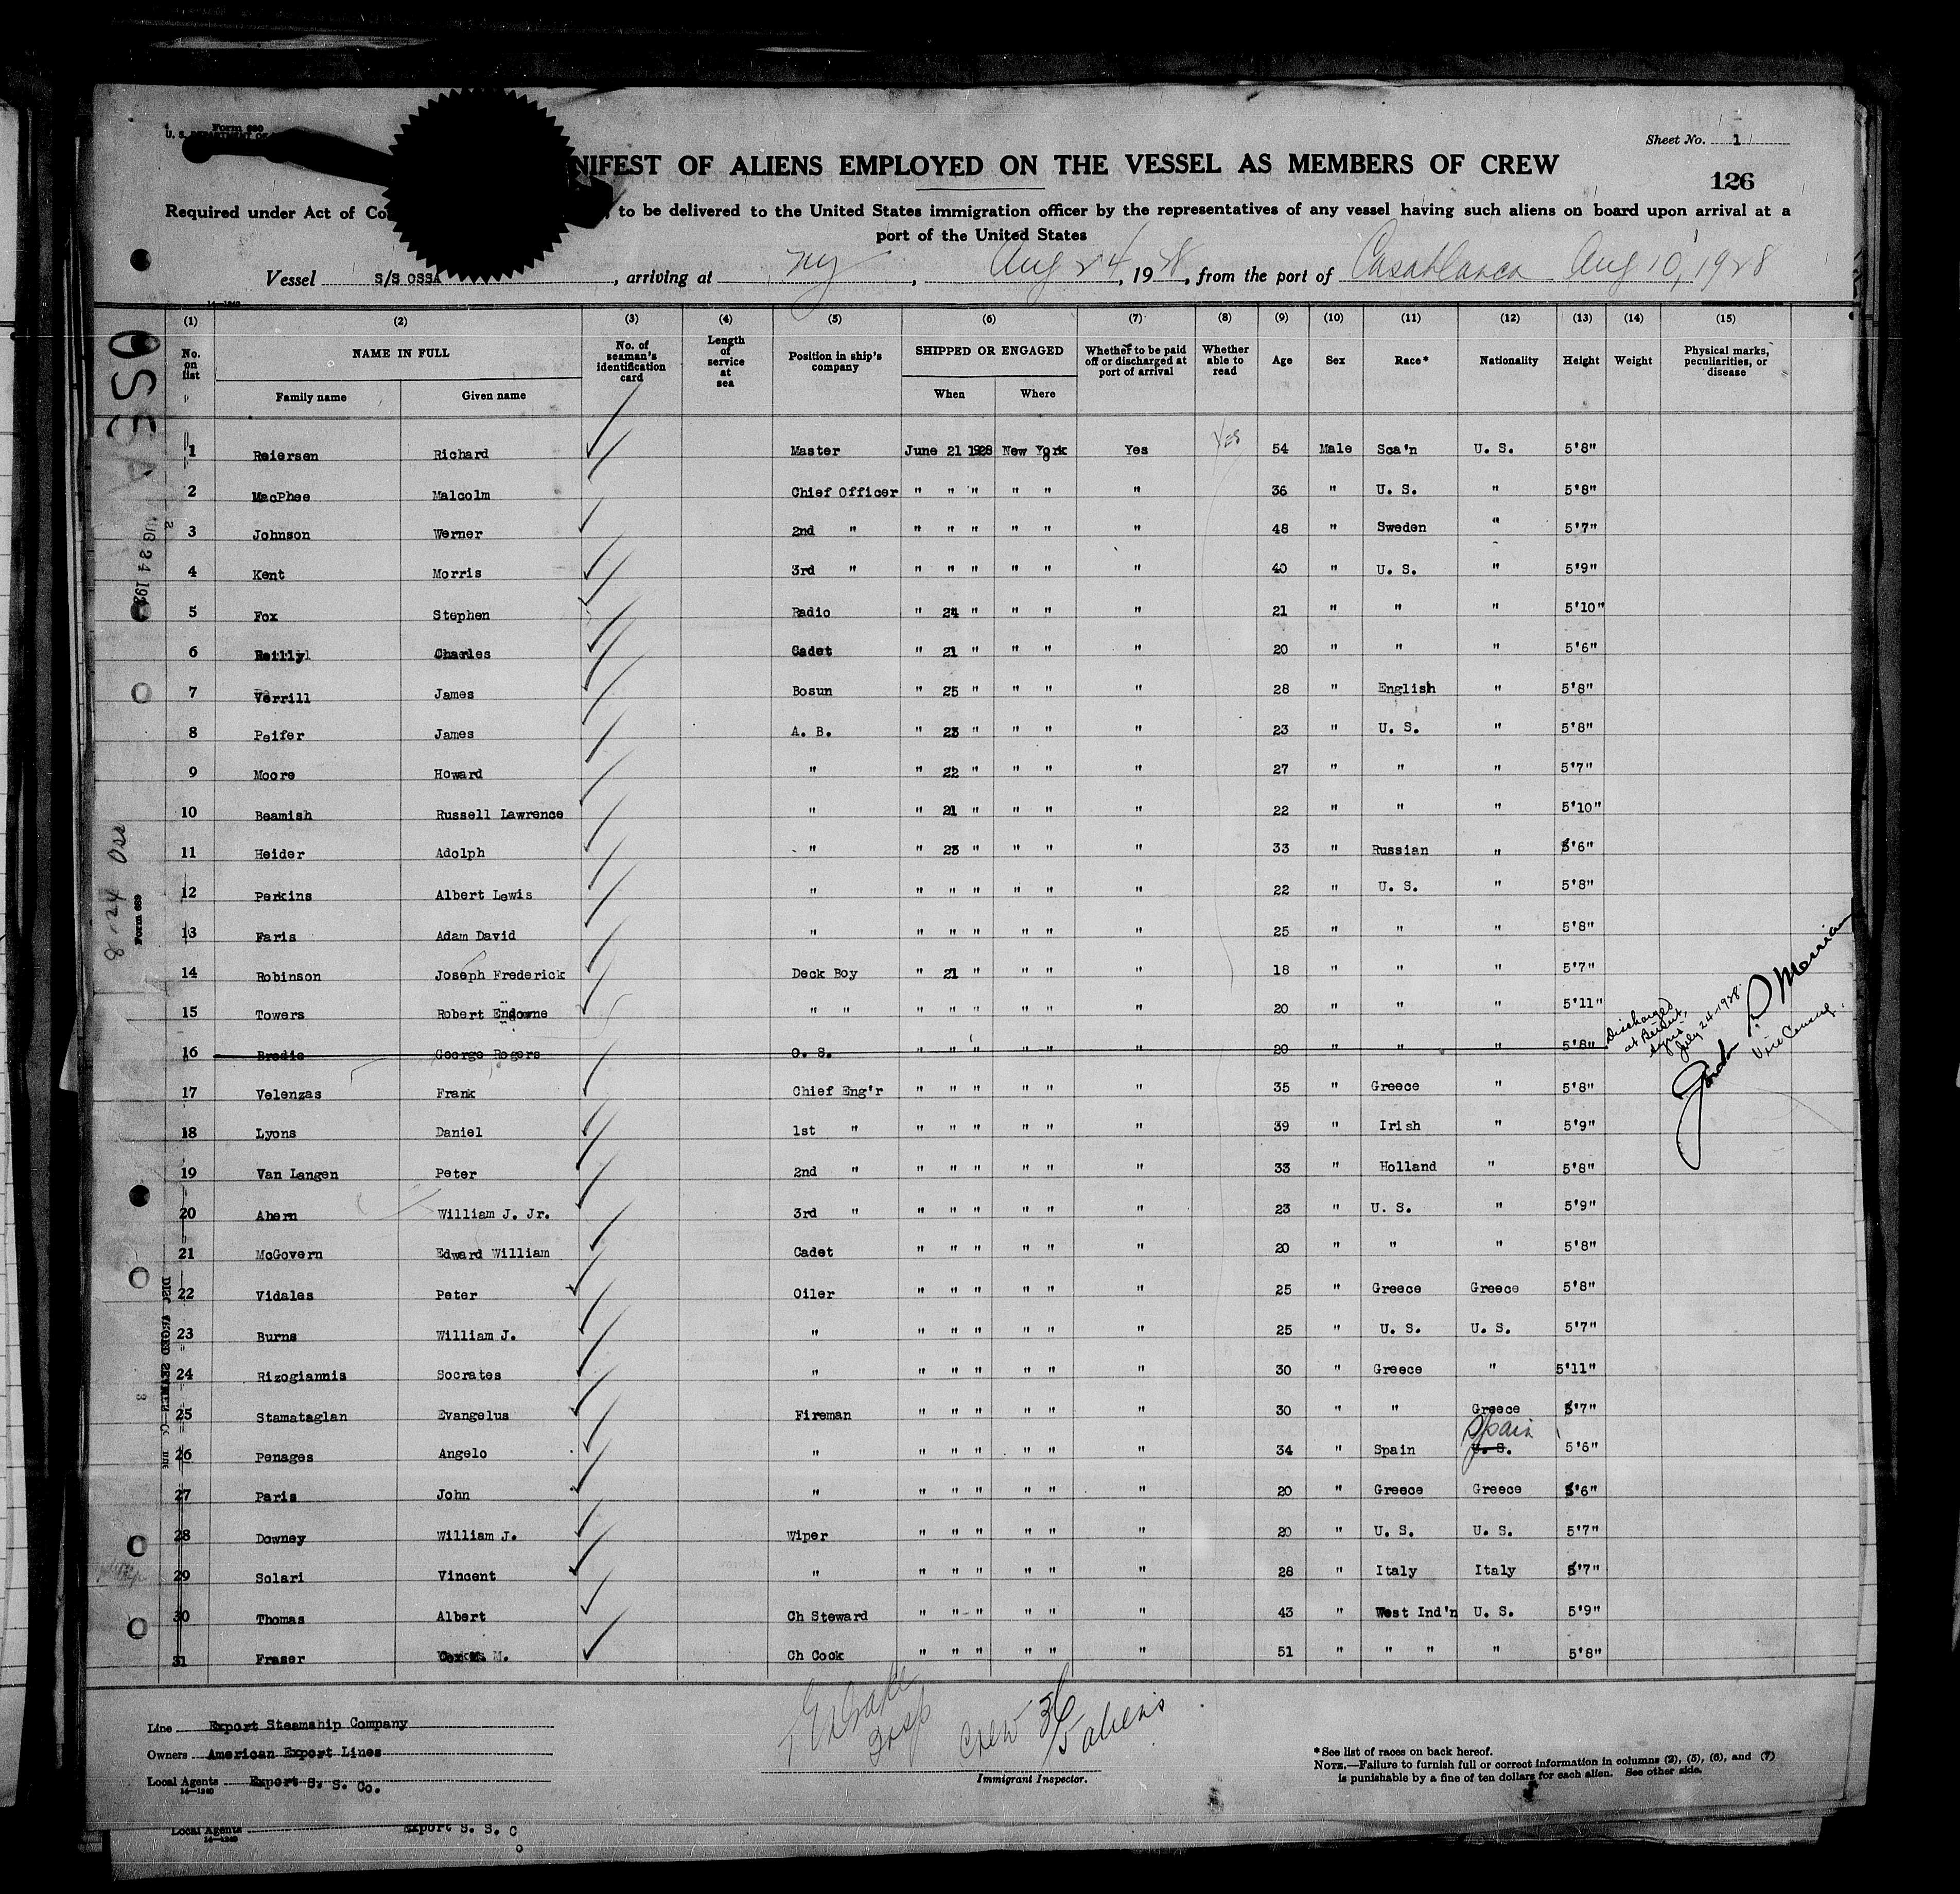 Form 689
U. S. DEPARTMENT OF
Sheet No. 1
NIFEST OF ALIENS EMPLOYED ON THE VESSEL AS MEMBERS OF CREW
126
Required under Act of Co to be delivered to the United States immigration officer by the representatives of any vessel having such aliens on board upon arrival at a
port of the United States
Vessel S/S OSSA, arriving at NY, Aug 24, 1928, from the port of Casablanca Aug 10, 1928
14—1240
(1) (2) (3) (4) (5) (6) (7) (8) (9) (10) (11) (12) (13) (14) (15)
No. on list NAME IN FULL Family name Given name No. of seaman's identification card Length of service at sea Position in ship's company SHIPPED OR ENGAGED When Where Whether to be paid off or discharged at port of arrival Whether able to read Age Sex Race* Nationality Height Weight Physical marks, peculiarities, or disease
1 Reiersen Richard Master June 21 1928 New York Yes Yes 54 Male Sca'n U. S. 5'8"
2 MacPhee Malcolm Chief Officer " " " " " " 36 " U. S. " 5'8"
3 Johnson Werner 2nd " " " " " " " 48 " Sweden " 5'7"
4 Kent Morris 3rd " " " " " " " 40 " U. S. " 5'9"
5 Fox Stephen Radio " 24 " " " " 21 " " " 5'10"
6 Reilly Charles Cadet " 21 " " " " 20 " " " 5'6"
7 Verrill James Bosun " 25 " " " " 28 " English " 5'8"
8 Peifer James A. B. " 23 " " " " 23 " U. S. " 5'8"
9 Moore Howard " " 22 " " " " 27 " " " 5'7"
10 Beamish Russell Lawrence " " 21 " " " " 22 " " " 5'10"
11 Heider Adolph " " 23 " " " " 33 " Russian " 5'6"
12 Perkins Albert Lewis " " " " " " " 22 " U. S. " 5'8"
13 Faris Adam David " " " " " " " 25 " " " 5'8"
14 Robinson Joseph Frederick Deck Boy " 21 " " " " 18 " " " 5'7"
15 Towers Robert " " " " " " " " 20 " " " 5'11"
16 Brodie George Rogers O. S. " " " " " " 20 " " " 5'8" Discharged at Beirut, Syria July 24-1928. Vice Consul.
17 Velenzas Frank Chief Eng'r " " " " " " 35 " Greece " 5'8"
18 Lyons Daniel 1st " " " " " " " 39 " Irish " 5'9"
19 Van Langen Peter 2nd " " " " " " " 33 " Holland " 5'8"
20 Ahern William J. Jr. 3rd " " " " " " " 23 " U. S. " 5'9"
21 McGovern Edward William Cadet " " " " " " 20 " " " 5'8"
22 Vidales Peter Oiler " " " " " " 25 " Greece Greece 5'8"
23 Burns William J. " " " " " " " 25 " U. S. U. S. 5'7"
24 Rizogiannis Socrates " " " " " " " 30 " Greece " 5'11"
25 Stamataglan Evangelus Fireman " " " " " " 30 " " Greece 5'7"
26 Penages Angelo " " " " " " " 34 " Spain U. S. Spain 5'6"
27 Paris John " " " " " " " 20 " Greece Greece 5'6"
28 Downey William J. Wiper " " " " " " 20 " U. S. U. S. 5'7"
29 Solari Vincent " " " " " " " 28 " Italy Italy 5'7"
30 Thomas Albert Ch Steward " " " " " " 43 " West Ind'n U. S. 5'9"
31 Fraser M. Ch Cook " " " " " " 51 " " " " 5'8"
OSSA
AUG 24 192
8-24 Oss
Form 689
Line Export Steamship Company
Owners American Export Lines
Local Agents Export S. S. Co.
14—1240
Crew 36
5 aliens
Immigrant Inspector.
*See list of races on back hereof.
NOTE.—Failure to furnish full or correct information in columns (2), (5), (6), and (7)
is punishable by a fine of ten dollars for each alien. See other side.
Local Agents Export S. S. C
14—1240
o